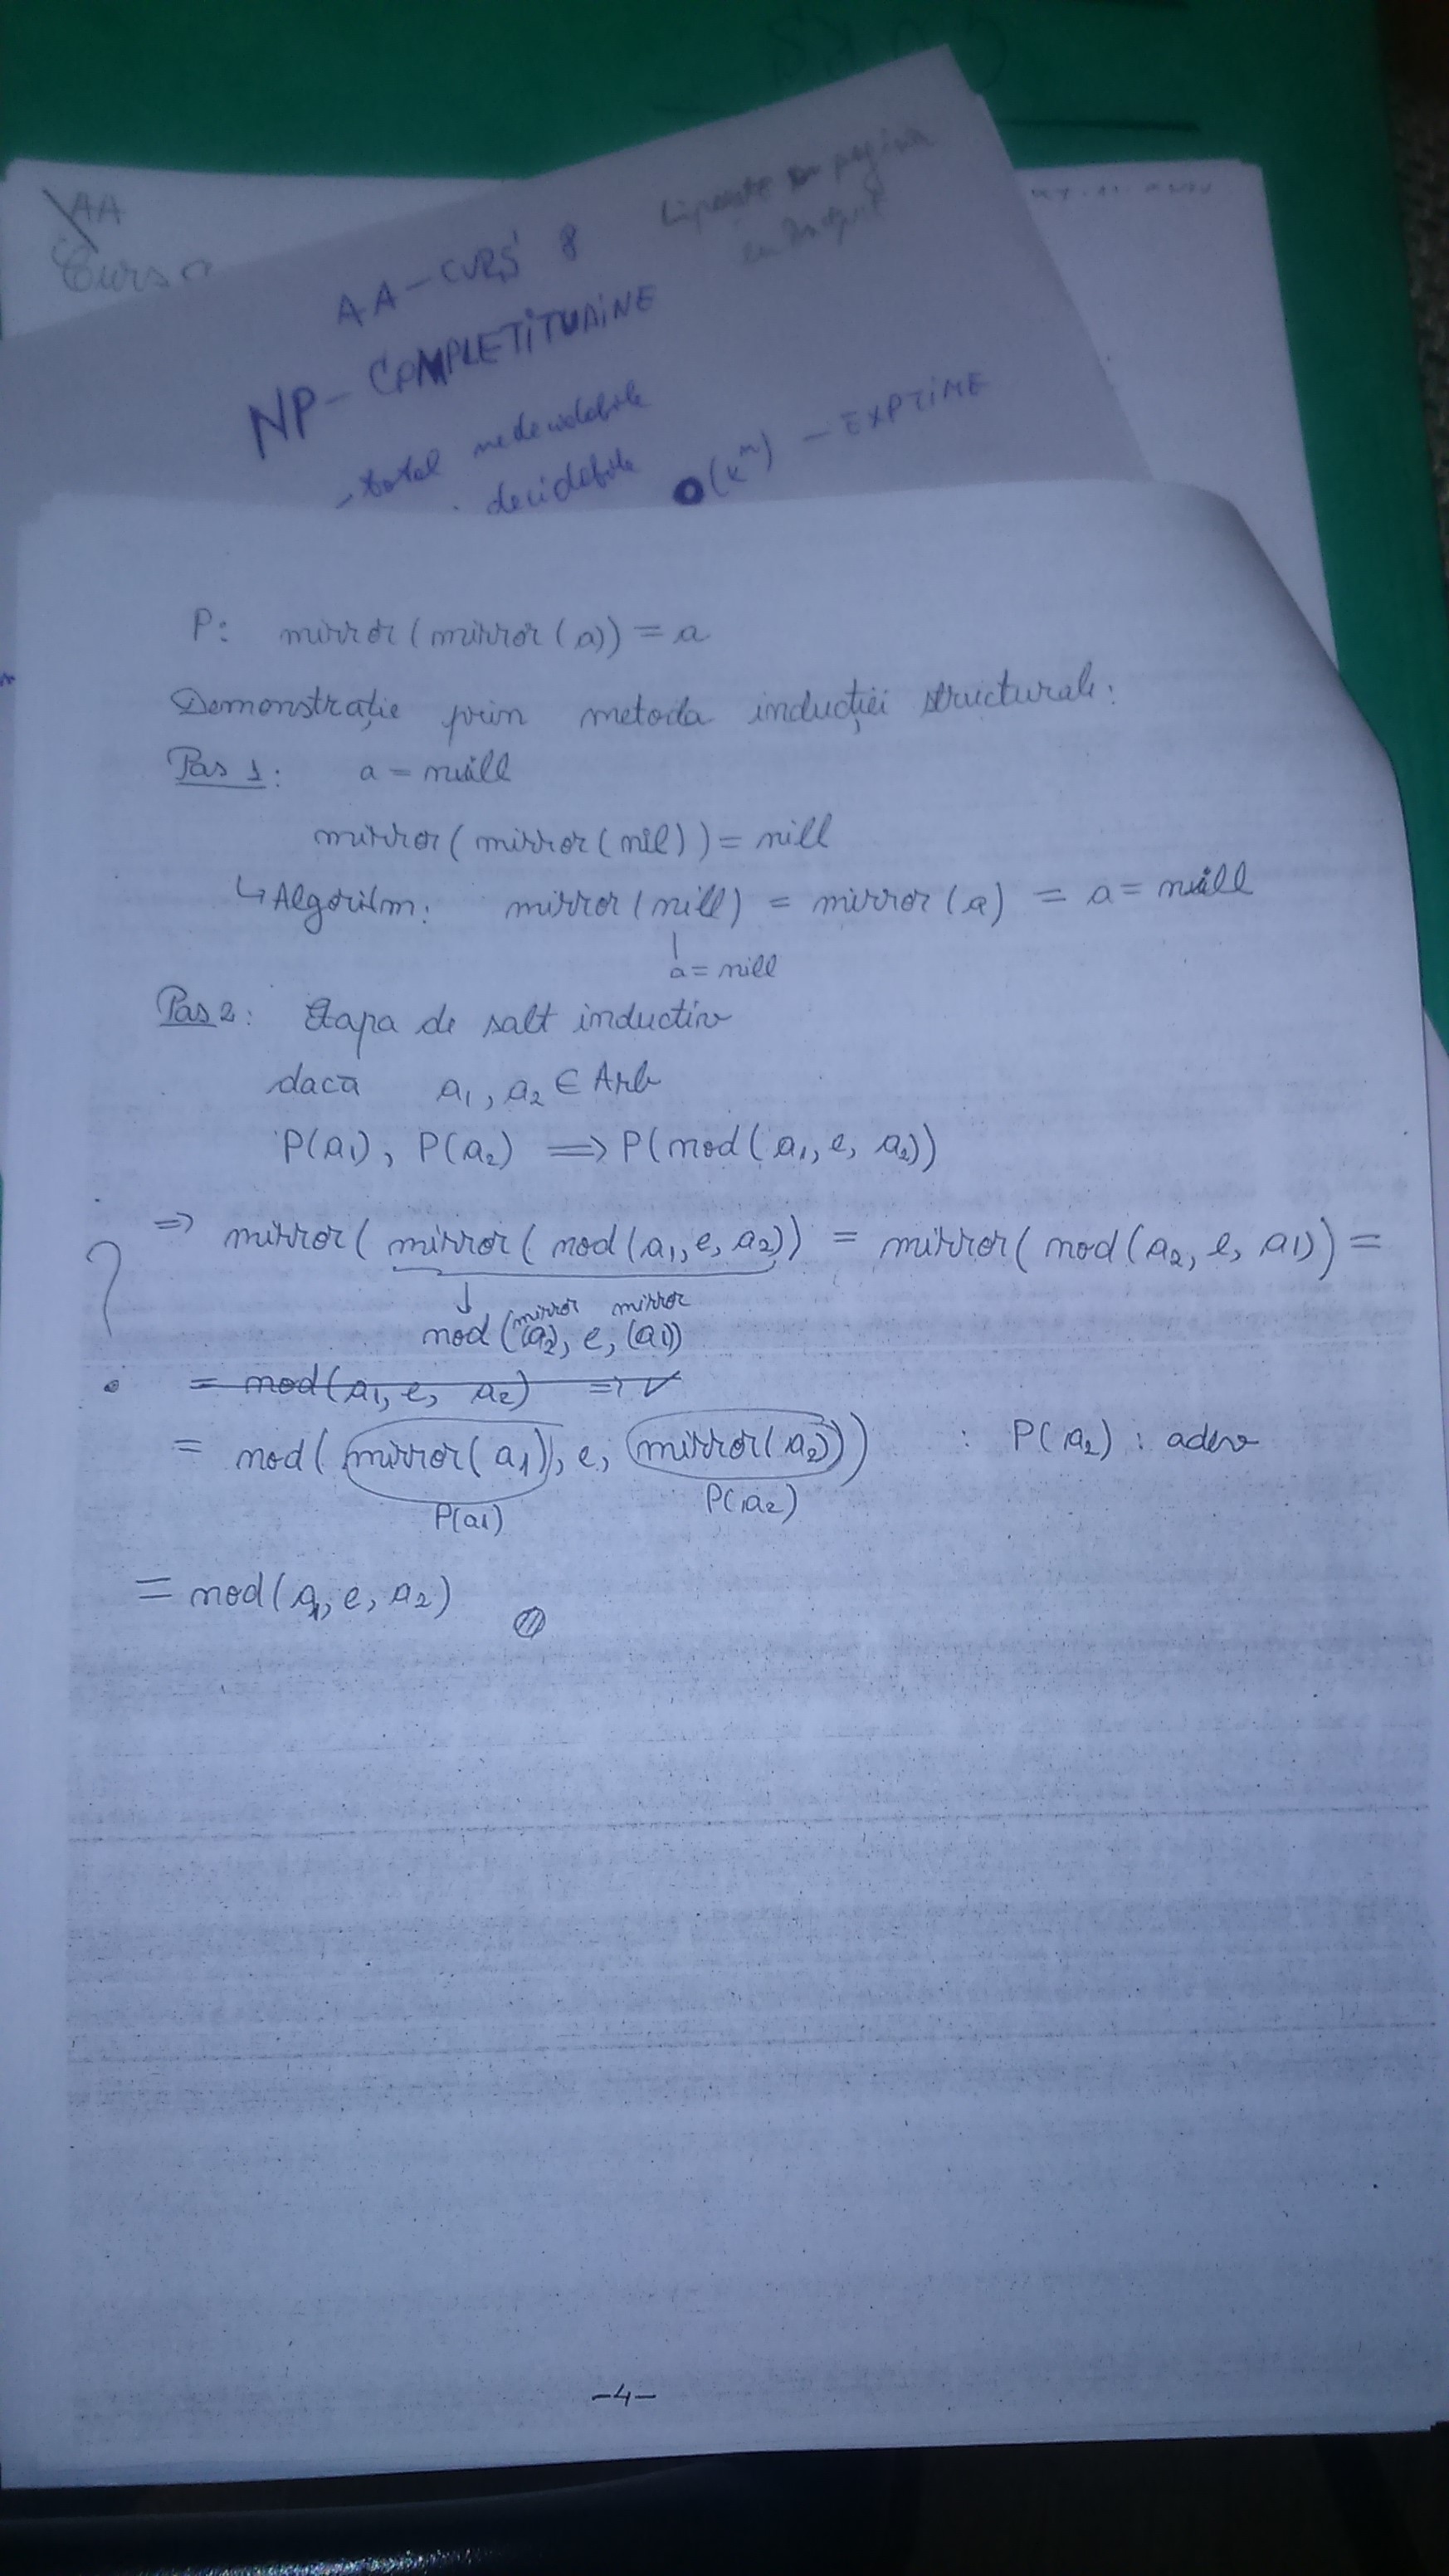 AA
Curs
AA - CURS 8
NP - COMPLETITUDINE
- total nedecidabile
. decidabile O(k^n) - EXPTIME
Lipeste pagina
P: mirror(mirror(a)) = a
Demonstrație prin metoda inducției structurale:
Pas 1: a = nill
mirror(mirror(nil)) = nill
↳ Algoritm: mirror(nill) = mirror(a) = a = nill
a = nill
Pas 2: Etapa de salt inductiv
dacă a1, a2 ∈ Arb
P(a1), P(a2) => P(nod(a1, e, a2))
=> mirror(mirror(nod(a1, e, a2)) = mirror(nod(a2, e, a1)) =
mirror mirror
nod((a2), e, (a1))
= nod(a1, e, a2) => V
= nod(mirror(a1), e, mirror(a2)) : P(a2) : adev
P(a1) P(a2)
= nod(a1, e, a2)
?
-4-